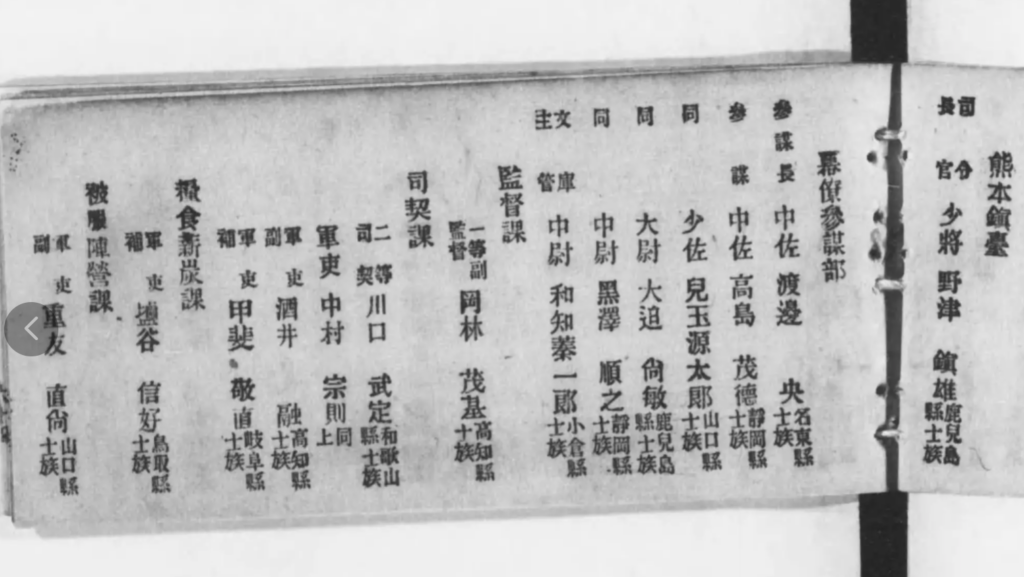 熊本鎭臺
司令長官 少將 野津 鎭雄 鹿兒島縣士族
幕僚參謀部
參謀長 中佐 渡邊 央 名東縣士族
參謀 中佐 高島 茂德 靜岡縣士族
同 少佐 兒玉源太郎 山口縣士族
同 大尉 大迫 尙敏 鹿兒島縣士族
同 中尉 黑澤 順之 靜岡縣士族
文庫主管 中尉 和知蓁一郎 小倉縣士族
監督課
一等副監督 岡林 茂 高知縣士族
司契課
二等司契 川口 武定 和歌山縣士族
軍吏 中村 宗則 同上
軍吏副 酒井 融 高知縣士族
軍吏補 甲斐 敬直 岐阜縣士族
糧食薪炭課
軍吏補 塩谷 信好 鳥取縣士族
被服陣營課
軍吏副 重友 直尙 山口縣士族